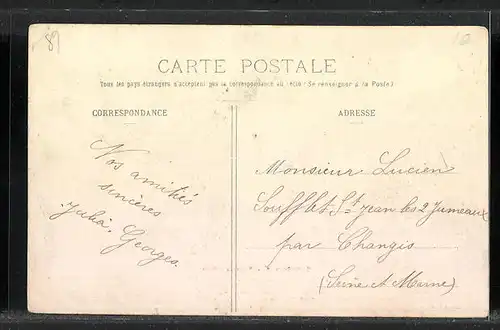 89
CARTE POSTALE
Tous les pays étrangers n'acceptent pas la correspondance au recto (Se renseigner à la Poste)
CORRESPONDANCE
ADRESSE
Nos amitiés
sincères
Julia. Georges.
Monsieur Lucien
Soufflet St Jean les 2 Jumeaux
par Changis
(Seine et Marne)